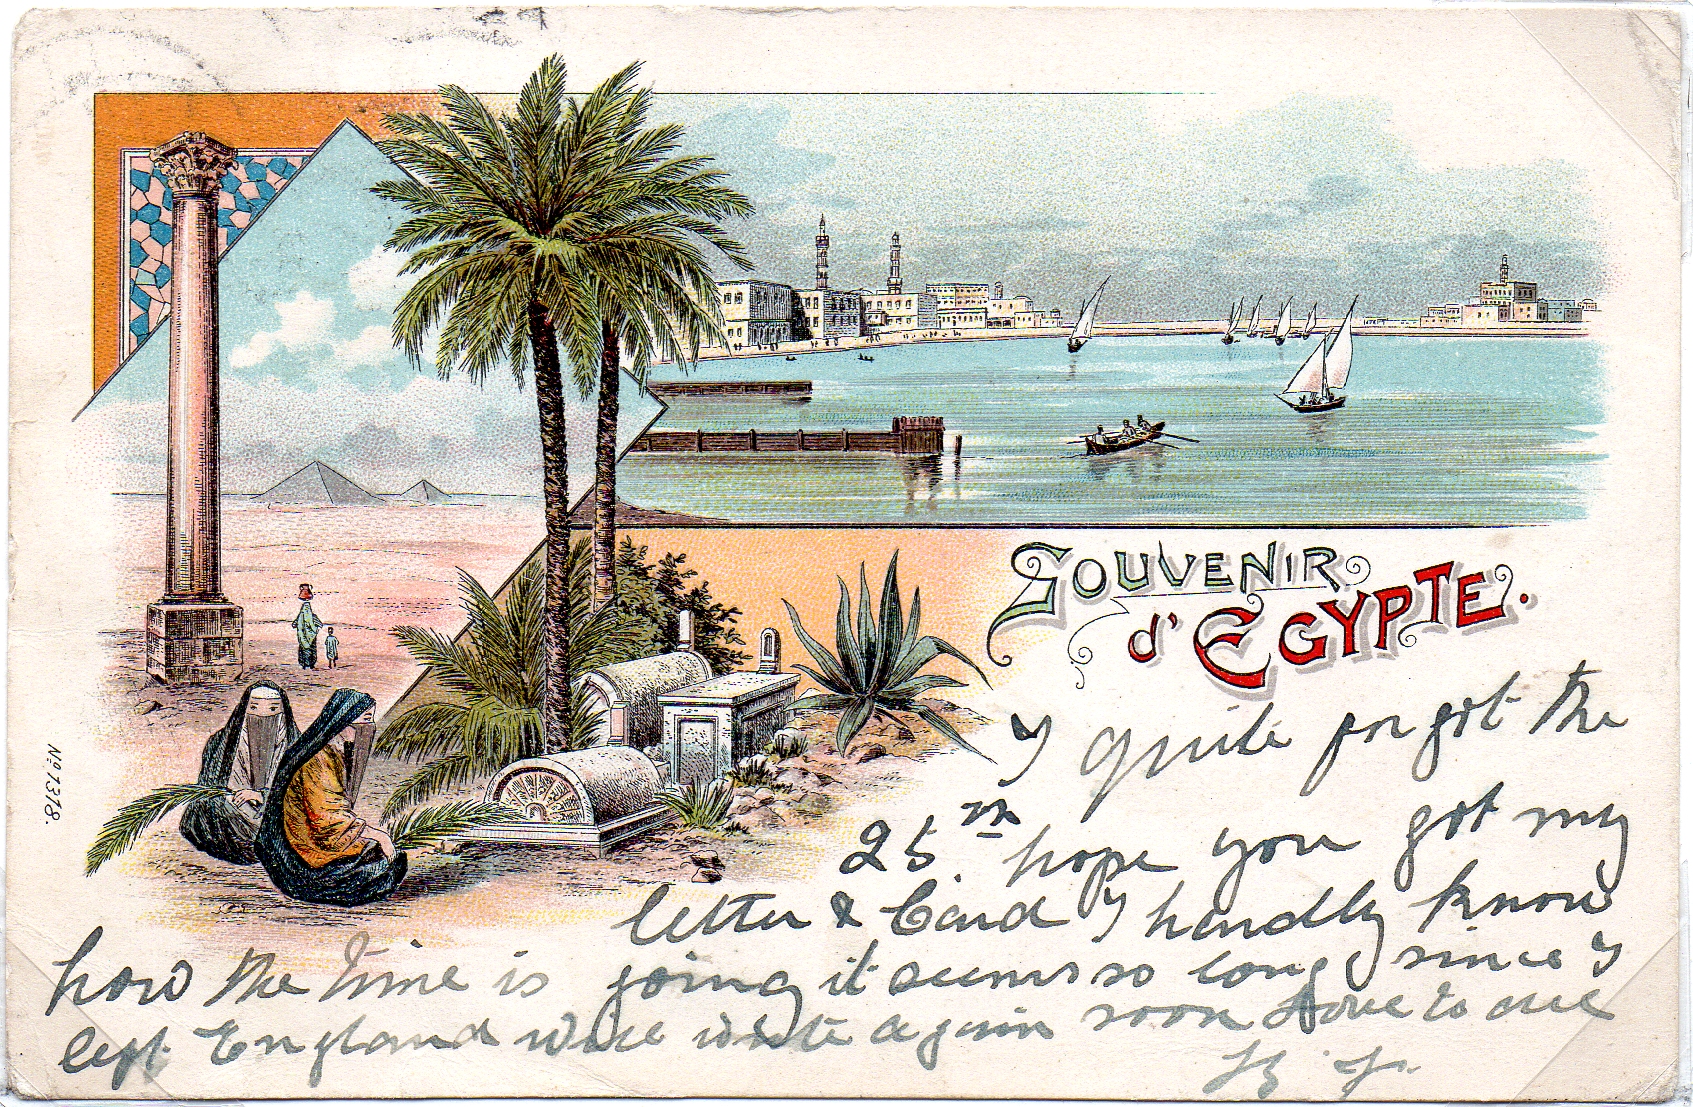 Souvenir
d'Egypte.
I quite forgot the
25th hope you got my
letter & Card I hardly know
how the time is going it seems so long since I
left England will write again soon Love to all
No. 7378.